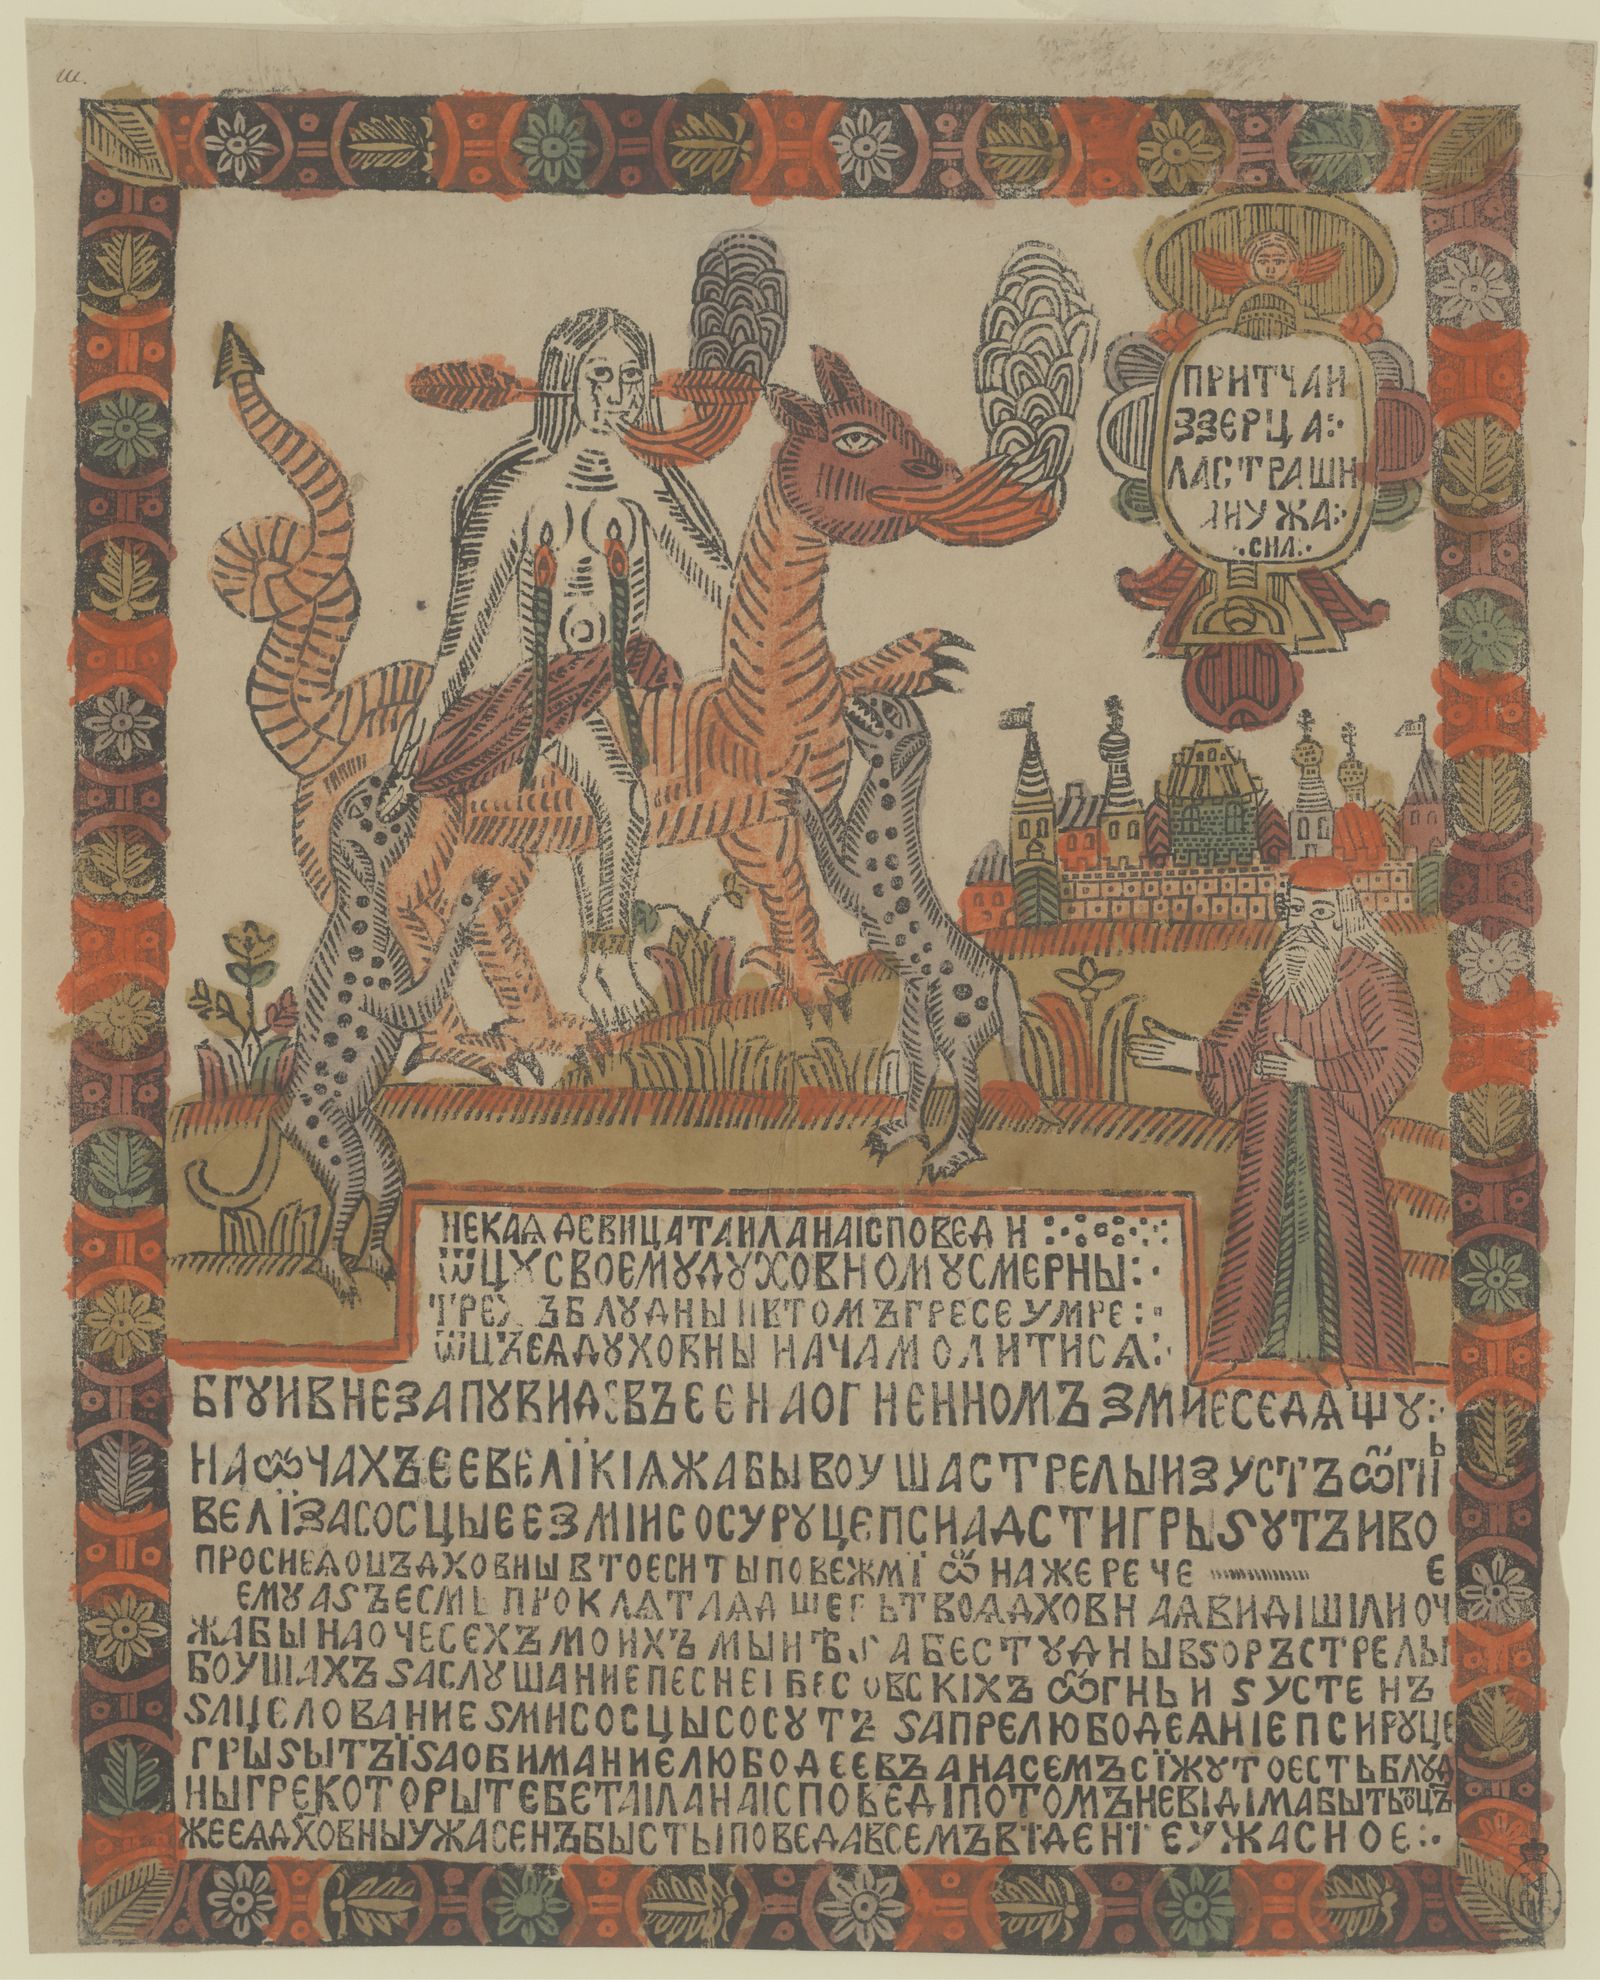 ПРИТЧАИ
ЗЗЕРЦА
ЛАСТРАШН
АИУЖА
СНА
НЕКАѦДЕВИЦАТАИЛАНАІСПОВЕДИ
ѾЦꙊСВОЕМꙊДꙊХОВНОМꙊСМЕРНЫ
ТРЕХЪБЛꙊДНЫИВТОМЪГРЕСЕУМРЕ
ѾЦЪЕѦДꙊХОВНЫ НАЧАМОЛИТИСѦ
БГꙊИВНЕЗАПꙊВИДЕВЪЕЕНАОГНЕННОМЪЗМИЕСЕДѦЩꙊ
НАѠЧАХЪЕЕВЕЛЇКІѦЖАБЫВОУШАСТРЕЛЫИЗУСТЪѠГНЬ
ВЕЛЇЗАСОСЦЫЕЕЗМІИСОСУРꙊЦЕПСИАДСТИГРЫЅꙊТЪИВО
ПРОСИЕѦОЦЪДХОВНЫВТОЕСИТЫПОВЕЖМЇ ѠНАЖЕРЕЧЕ
ЕМꙊАЅЪЕСМЬ ПРОКЛѦТАѦДЩЕРЬТВОѦДХОВНАѦВИДІШІЛИОЧЕ
ЖАБЫНАОЧЕСЕХЪМОИХЪ АБЕСТꙊДНЫВЅОРЪСТРЕЛЫ
ВОУШАХЪЅАСЛꙊШАНИЕПЕСНЕІБЕСОВСКІХЪ ѠГНЬИЅУСТЕНЪ
ЅАЦЕЛОВАНИЕЅМИСОСЦЫСОСꙊТЪ ЅАПРЕЛЮБОДЕѦНІЕПСИРꙊЦЕ
ГРЫЅЫТЪЇЅАОБИМАНИЕЛЮБОДЕЕВЪАНАСЕМЪСЇЖꙊТОЕСТЬБЛꙊД
НЫГРЕКОТОРЫТЕБЕТАІЛАНАІСПОВЕДІПОТОМЪНЕВІДІМАБЫТЬѾЦЪ
ЖЕЕѦДХОВНЫУЖАСЕНЪБЫСТЬІПОВЕДАВСЕМЪВІДЕНІЕУЖАСНОЕ